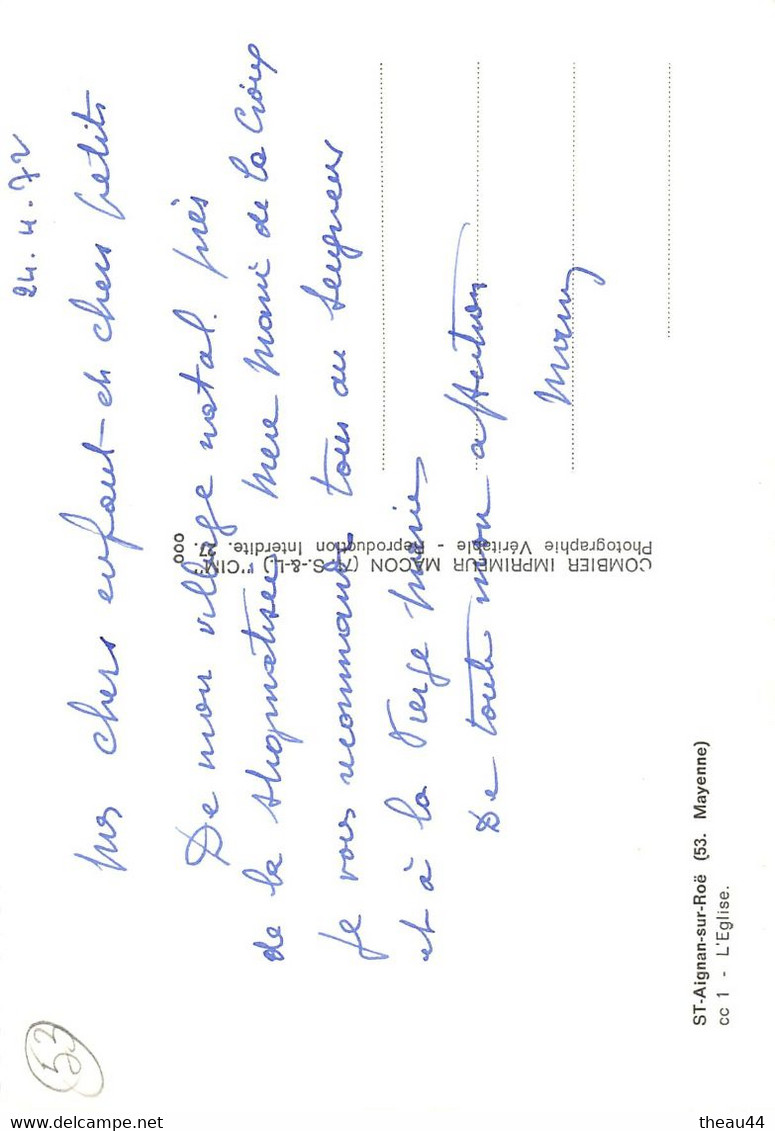 24.4.72
mes chers enfant et chers petits
De mon village natal. près
de la stigmatisée mere Marie de la Croix
je vous recommande tous au Seigneur
et à la Vierge Marie,
De toute mon affection
COMBIER IMPRIMEUR MACON (71 S.-&-L.) "CIM"
Photographie Véritable - Reproduction Interdite. 27.
000
ST-Aignan-sur-Roë (53. Mayenne)
cc 1 - L'Eglise.
53
theau44
delcampe.net